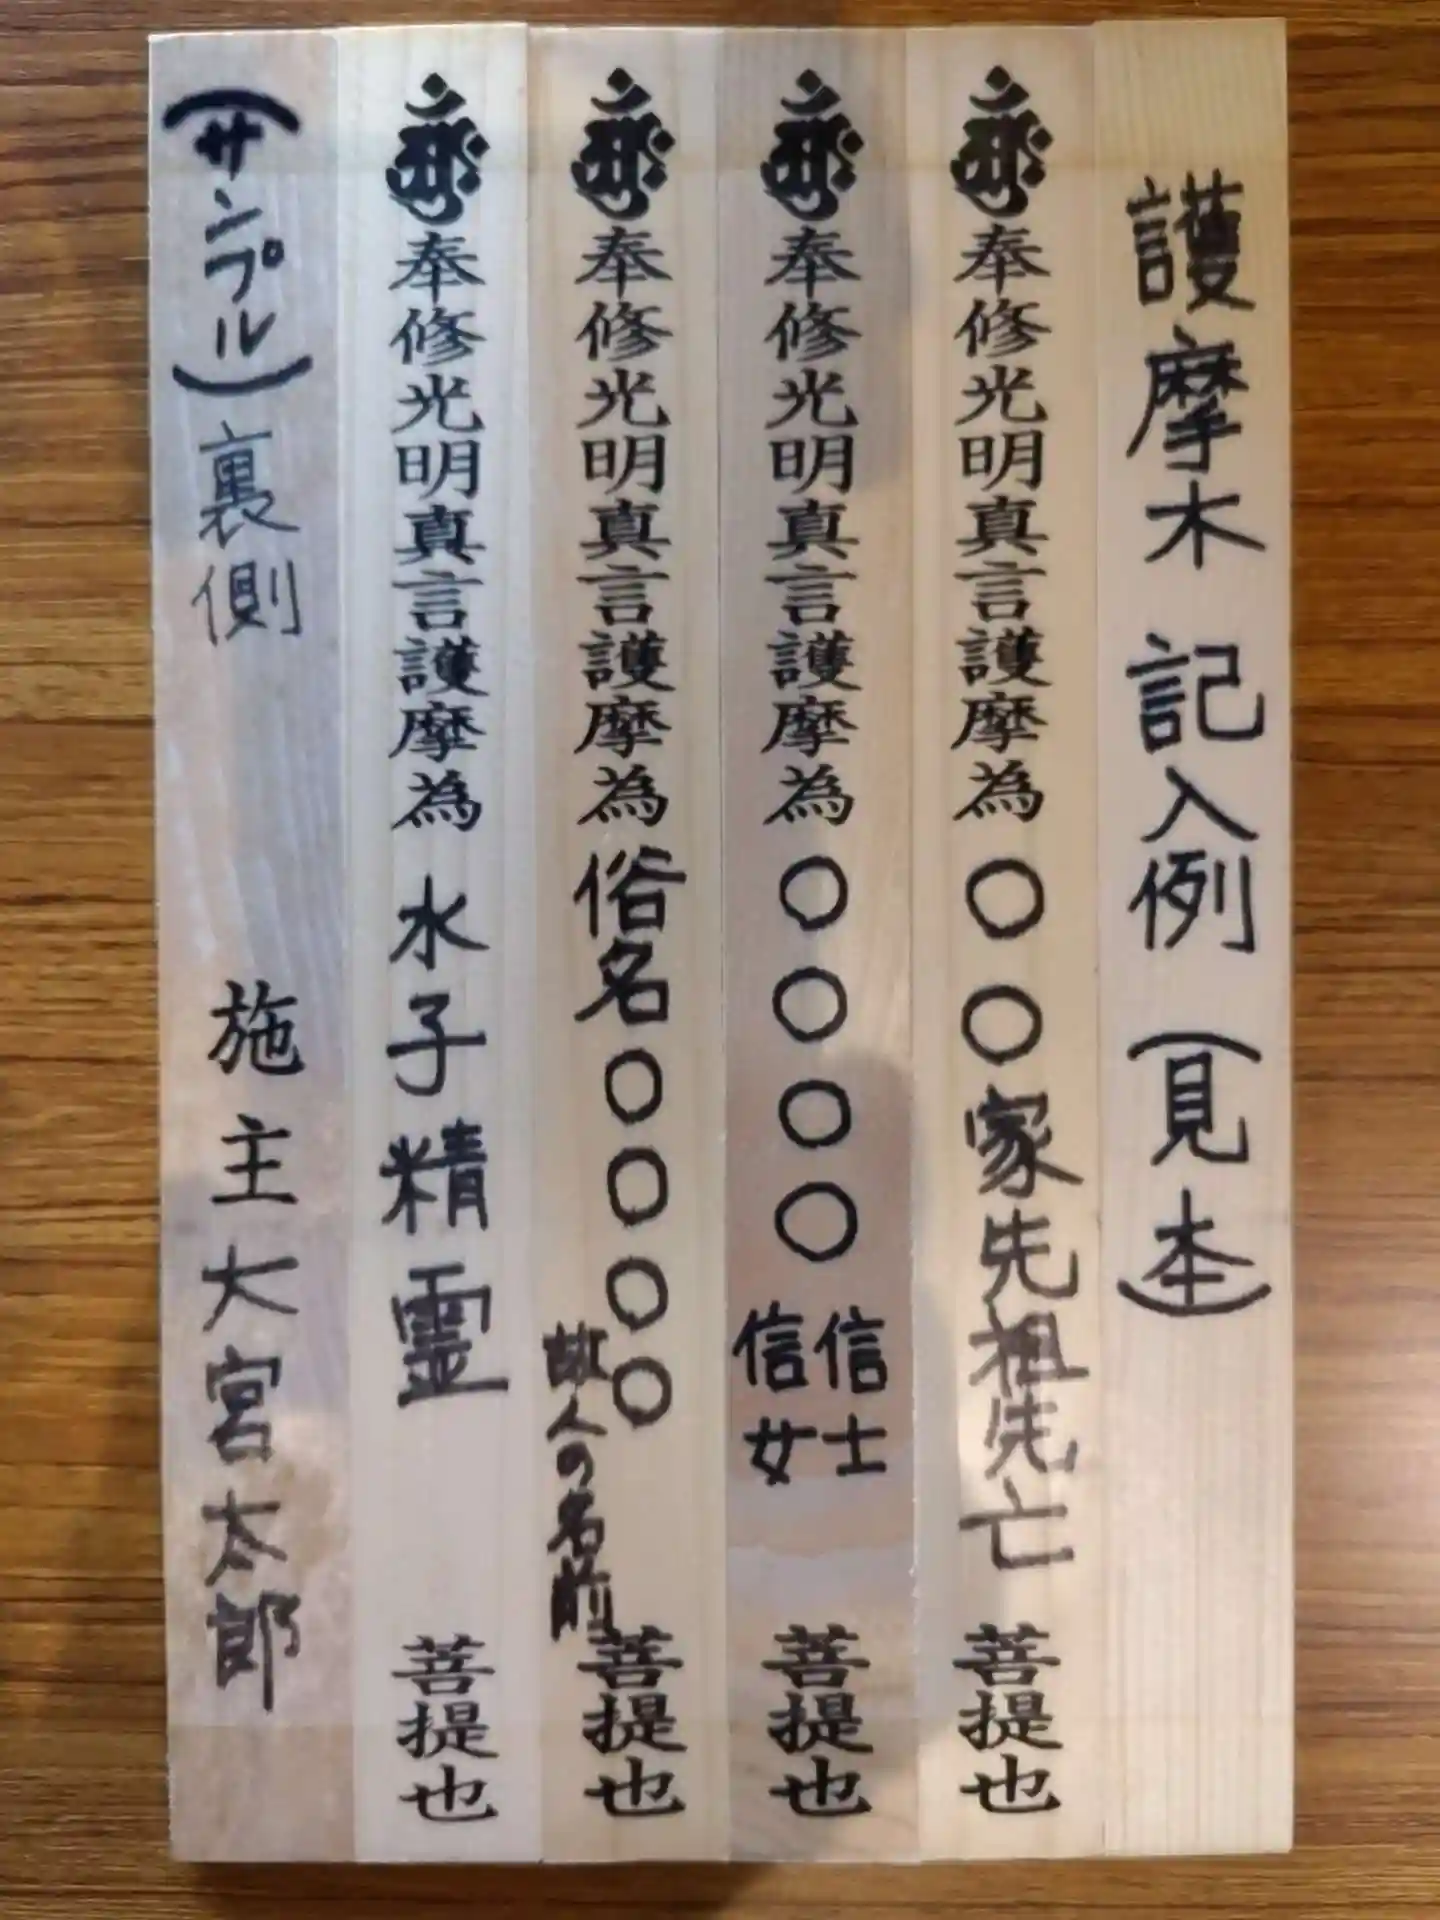 護摩木 記入例 (見本)
奉修光明真言護摩為 〇〇家先祖先亡 菩提也
奉修光明真言護摩為 〇〇〇〇 信士 信女 菩提也
奉修光明真言護摩為 俗名〇〇〇〇 故人の名前 菩提也
奉修光明真言護摩為 水子精霊 菩提也
(サンプル)裏側 施主大宮太郎